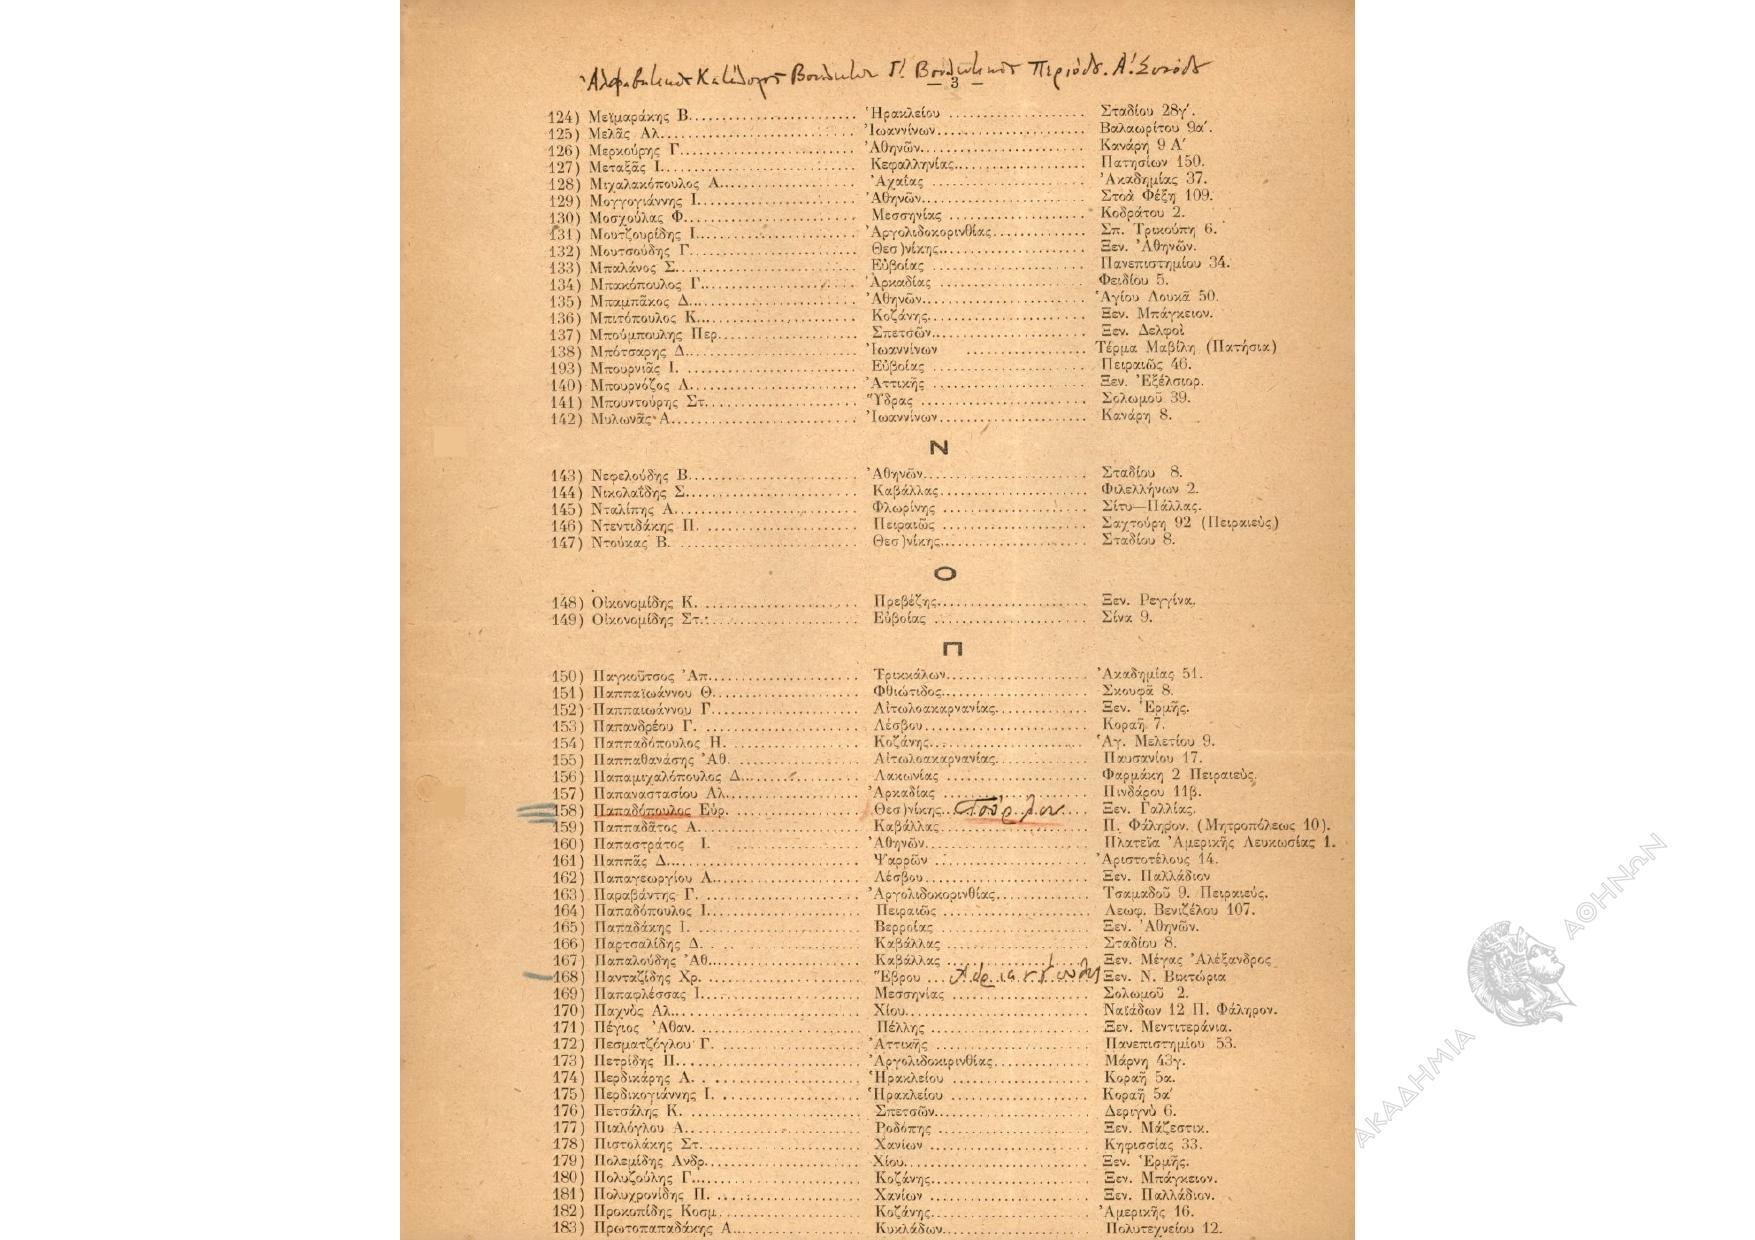 Ἀλφαβητικὸς Κατάλογος Βουλευτῶν Γ΄ Βουλευτικῆς Περιόδ. Α΄ Συνόδ
— 3 —
124) Μεϊμαράκης Β. Ἡρακλείου Σταδίου 28γ′.
125) Μελᾶς Αλ. Ἰωαννίνων Βαλαωρίτου 9α′.
126) Μερκούρης Γ. Ἀθηνῶν Κανάρη 9 Α′
127) Μεταξᾶς Ι. Κεφαλληνίας Πατησίων 150.
128) Μιχαλακόπουλος Α. Ἀχαΐας Ἀκαδημίας 37.
129) Μογγογιάννης Ι. Ἀθηνῶν Στοὰ Φέξη 109.
130) Μοσχούλας Φ. Μεσσηνίας Κοδράτου 2.
131) Μουτζουρίδης Ι. Ἀργολιδοκορινθίας Σπ. Τρικούπη 6.
132) Μουτσούδης Γ. Θεσ)νίκης Ξεν. Ἀθηνῶν.
133) Μπαλάνος Σ. Εὐβοίας Πανεπιστημίου 34.
134) Μπακόπουλος Γ. Ἀρκαδίας Φειδίου 5.
135) Μπαμπᾶκος Δ. Ἀθηνῶν Ἁγίου Λουκᾶ 50.
136) Μπιτόπουλος Κ. Κοζάνης Ξεν. Μπάγκειον.
137) Μπούμπουλης Περ. Σπετσῶν Ξεν. Δελφοὶ
138) Μπότσαρης Δ. Ἰωαννίνων Τέρμα Μαβίλη (Πατήσια)
193) Μπουρνιᾶς Ι. Εὐβοίας Πειραιῶς 46.
140) Μπουρνόζος Λ. Ἀττικῆς Ξεν. Ἐξέλσιορ.
141) Μπουντούρης Στ. Ὕδρας Σολωμοῦ 39.
142) Μυλωνᾶς Α. Ἰωαννίνων Κανάρη 8.
Ν
143) Νεφελούδης Β. Ἀθηνῶν Σταδίου 8.
144) Νικολαΐδης Σ. Καβάλλας Φιλελλήνων 2.
145) Νταλίπης Α. Φλωρίνης Σίτυ—Πάλλας.
146) Ντεντιδάκης Π. Πειραιῶς Σαχτούρη 92 (Πειραιεὺς)
147) Ντούκας Β. Θεσ)νίκης Σταδίου 8.
Ο
148) Οἰκονομίδης Κ. Πρεβέζης Ξεν. Ρεγγίνα.
149) Οἰκονομίδης Στ. Εὐβοίας Σίνα 9.
Π
150) Παγκοῦτσος Ἀπ. Τρικκάλων Ἀκαδημίας 51.
151) Παππαϊωάννου Θ. Φθιώτιδος Σκουφᾶ 8.
152) Παππαιωάννου Γ. Αἰτωλοακαρνανίας Ξεν. Ἑρμῆς.
153) Παπανδρέου Γ. Λέσβου Κοραῆ 7.
154) Παππαδόπουλος Η. Κοζάνης Ἁγ. Μελετίου 9.
155) Παππαθανάσης Ἀθ. Αἰτωλοακαρνανίας Παυσανίου 17.
156) Παπαμιχαλόπουλος Δ. Λακωνίας Φαρμάκη 2 Πειραιεύς.
157) Παπαναστασίου Αλ. Ἀρκαδίας Πινδάρου 11β.
158) Παπαδόπουλος Εὐρ. Θεσ)νίκης Ξεν. Γαλλίας.
159) Παππαδᾶτος Α. Καβάλλας Π. Φάληρον. (Μητροπόλεως 10).
160) Παπαστράτος Ι. Ἀθηνῶν Πλατεῖα Ἀμερικῆς Λευκωσίας 1.
161) Παππᾶς Δ. Ψαρρῶν Ἀριστοτέλους 14.
162) Παπαγεωργίου Α. Λέσβου Ξεν. Παλλάδιον
163) Παραβάντης Γ. Ἀργολιδοκορινθίας Τσαμαδοῦ 9. Πειραιεύς.
164) Παπαδόπουλος Ι. Πειραιῶς Λεωφ. Βενιζέλου 107.
165) Παπαδάκης Ι. Βερροίας Ξεν. Ἀθηνῶν.
166) Παρτσαλίδης Δ. Καβάλλας Σταδίου 8.
167) Παπαλούδης Ἀθ. Καβάλλας Ξεν. Μέγας Ἀλέξανδρος
168) Πανταζίδης Χρ. Ἕβρου Ξεν. Ν. Βικτώρια
169) Παπαφλέσσας Ι. Μεσσηνίας Σολωμοῦ 2.
170) Παχνὸς Αλ. Χίου Ναϊάδων 12 Π. Φάληρον.
171) Πέγιος Ἀθαν. Πέλλης Ξεν. Μεντιτεράνια.
172) Πεσματζόγλου Γ. Ἀττικῆς Πανεπιστημίου 53.
173) Πετρίδης Π. Ἀργολιδοκιρινθίας Μάρνη 43γ.
174) Περδικάρης Λ. Ἡρακλείου Κοραῆ 5α.
175) Περδικογιάννης Ι. Ἡρακλείου Κοραῆ 5α′
176) Πετσάλης Κ. Σπετσῶν Δεριγνὺ 6.
177) Πιαλόγλου Α. Ροδόπης Ξεν. Μάζεστικ.
178) Πιστολάκης Στ. Χανίων Κηφισσίας 33.
179) Πολεμίδης Ανδρ. Χίου Ξεν. Ἑρμῆς.
180) Πολυζούλης Γ. Κοζάνης Ξεν. Μπάγκειον.
181) Πολυχρονίδης Π. Χανίων Ξεν. Παλλάδιον.
182) Προκοπίδης Κοσμ. Κοζάνης Ἀμερικῆς 16.
183) Πρωτοπαπαδάκης Α. Κυκλάδων Πολυτεχνείου 12.
ΑΚΑΔΗΜΙΑ ΑΘΗΝΩΝ